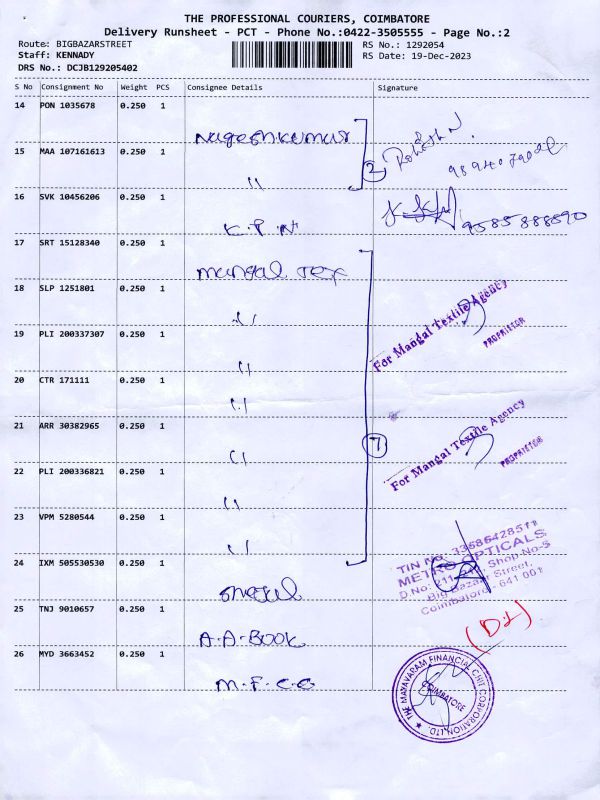 THE PROFESSIONAL COURIERS, COIMBATORE
Delivery Runsheet - PCT - Phone No.:0422-3505555 - Page No.:2
Route: BIGBAZARSTREET
RS No.: 1292054
Staff: KENNADY
RS Date: 19-Dec-2023
DRS No.: DCJB129205402
S No Consignment No Weight PCS Consignee Details Signature
14 PON 1035678 0.250 1
Nageshkumar
15 MAA 107161613 0.250 1
"
2
Rohith N
16 SVK 10456206 0.250 1
K.P.N
9585888590
17 SRT 15128340 0.250 1
mangal Tex
18 SLP 1251801 0.250 1
"
For Mangal Textile Agency
PROPRIETOR
19 PLI 200337307 0.250 1
"
20 CTR 171111 0.250 1
"
21 ARR 30382965 0.250 1
"
7
For Mangal Textile Agency
PROPRIETOR
22 PLI 200336821 0.250 1
"
23 VPM 5280544 0.250 1
"
24 IXM 505530530 0.250 1
TIN No. 33586428511
METRO OPTICALS
Shop No-5
Big Bazaar Street,
Coimbatore - 641 001
25 TNJ 9010657 0.250 1
A.A.BOOK
(D.L)
26 MYD 3663452 0.250 1
M.F.C.C
THE MAYAVARAM FINANCIAL CHIT CORPORATION LTD.
COIMBATORE